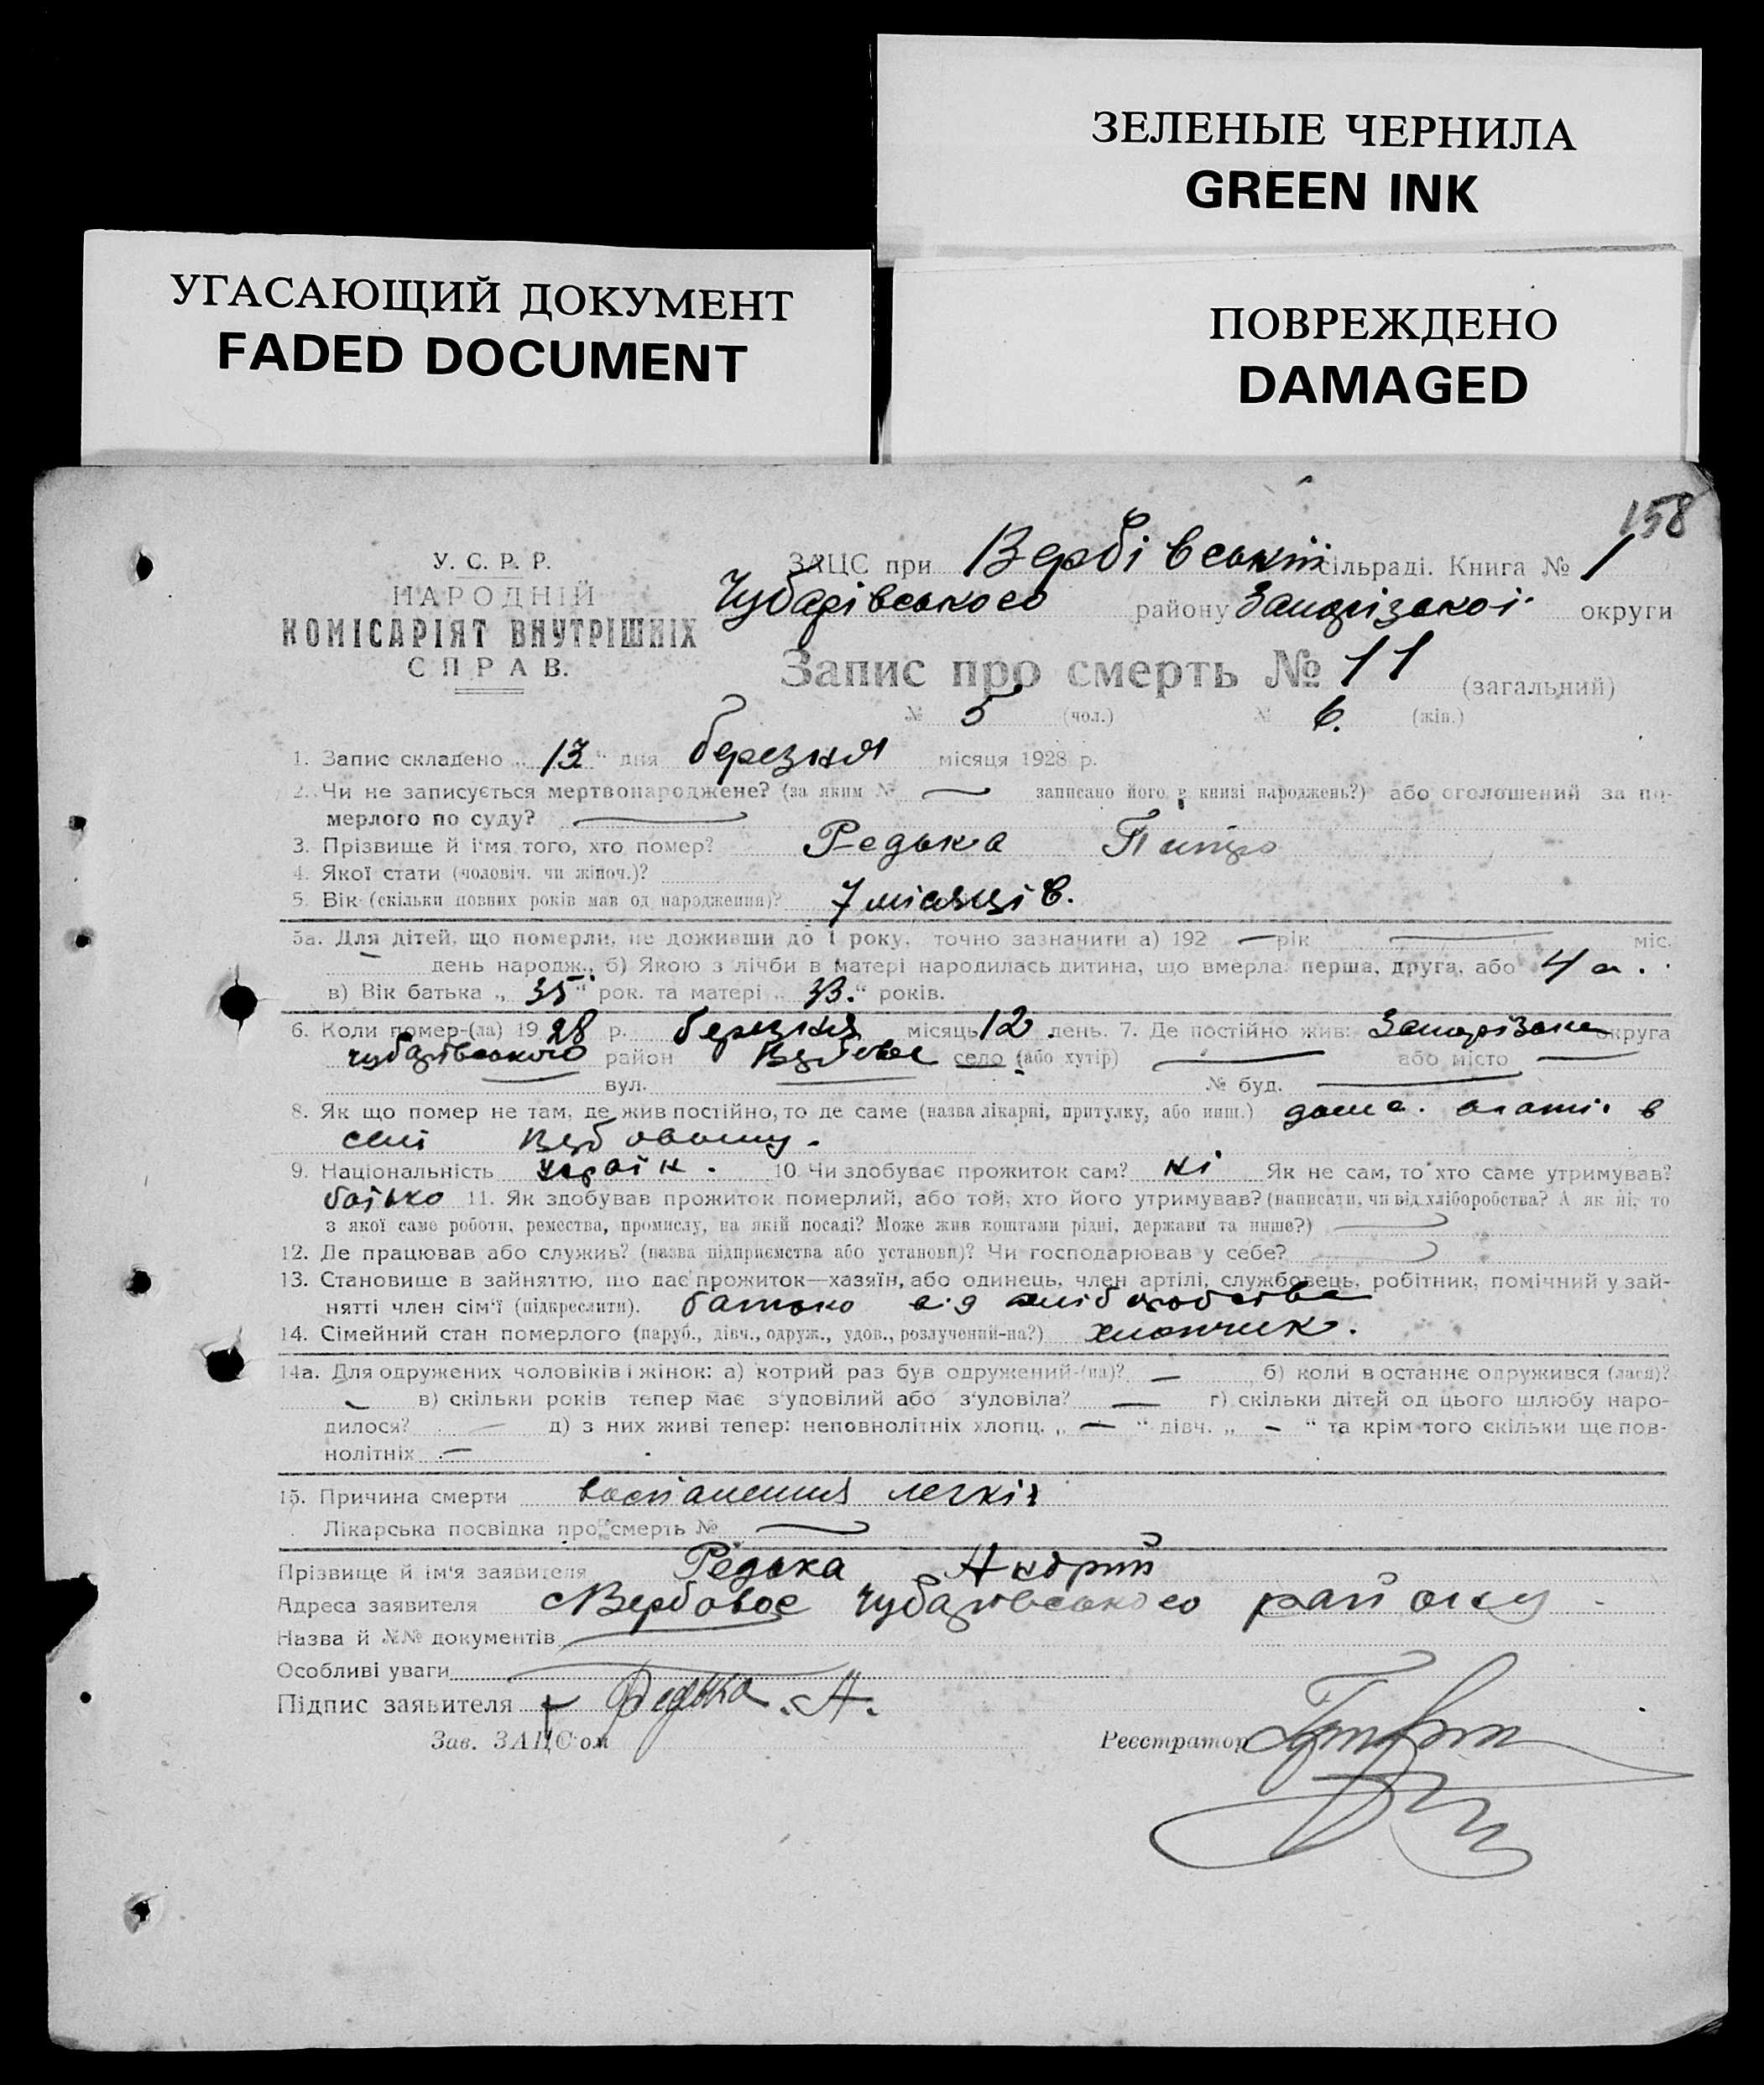 ЗЕЛЕНЫЕ ЧЕРНИЛА
GREEN INK
УГАСАЮЩИЙ ДОКУМЕНТ
FADED DOCUMENT
ПОВРЕЖДЕНО
DAMAGED
158
У. С. Р. Р.
НАРОДНІЙ
КОМІСАРІЯТ ВНУТРІШНІХ
СПРАВ.
ЗАЦС при Вербівській сільраді. Книга № 1
Чубарівського району Запорізької округи
Запис про смерть № 11 (загальний)
№ 5 (чол.) № 6. (жін.)
1. Запис складено „13“ дня березня місяця 1928 р.
2. Чи не записується мертвонароджене? (за яким № — записано його в книзі народжень?) або оголошений за по-
мерлого по суду? —
3. Прізвище й ім'я того, хто помер? Редька Петро
4. Якої стати (чоловіч. чи жіноч.)?
5. Вік (скільки повних років мав од народження)? 7 місяців.
5а. Для дітей, що померли, не доживши до 1 року, точно зазначити а) 192 — рік — міс.
— день народж., б) Якою з лічби в матері народилась дитина, що вмерла: перша, друга, або 4 а.
в) Вік батька „35“ рок. та матері „33.“ років.
6. Коли помер-(ла) 1928 р. березня місяць 12 день. 7. Де постійно жив: Запорізька округа
Чубарівського район Вербове село (або хутір) — або місто —
— вул. — № буд. —
8. Як що помер не там, де жив постійно, то де саме (назва лікарні, притулку, або инш.) дома. в
селі Вербовому.
9. Національність Україн. 10. Чи здобуває прожиток сам? ні Як не сам, то хто саме утримував?
батько 11. Як здобував прожиток померлий, або той, хто його утримував? (написати, чи від хліборобства? А як ні, то
з якої саме роботи, ремества, промислу, на якій посаді? Може жив коштами рідні, держави та инше?) —
12. Де працював або служив? (назва підприємства або установи)? Чи господарював у себе? —
13. Становище в зайняттю, що дає прожиток—хазяїн, або одинець, член артілі, службовець, робітник, помічний у зай-
нятті член сім'ї (підкреслити). батько від хліборобства
14. Сімейний стан померлого (паруб., дівч., одруж., удов., розлучений-на?) хлопчик.
14а. Для одружених чоловіків і жінок: а) котрий раз був одружений-(на)? — б) коли в останнє одружився (лася)?
— в) скільки років тепер має з'удовілий або з'удовіла? — г) скільки дітей од цього шлюбу наро-
дилося? — д) з них живі тепер: неповнолітніх хлопц. „—“ дівч. „—“ та крім того скільки ще пов-
нолітніх —
15. Причина смерти воспаления легкіх
Лікарська посвідка про смерть № —
Прізвище й ім'я заявителя Редька Андрий
Адреса заявителя с Вербовое Чубарівського району
Назва й №№ документів —
Особливі уваги —
Підпис заявителя Редька. А.
Зав. ЗАЦС'ом
Реєстратор